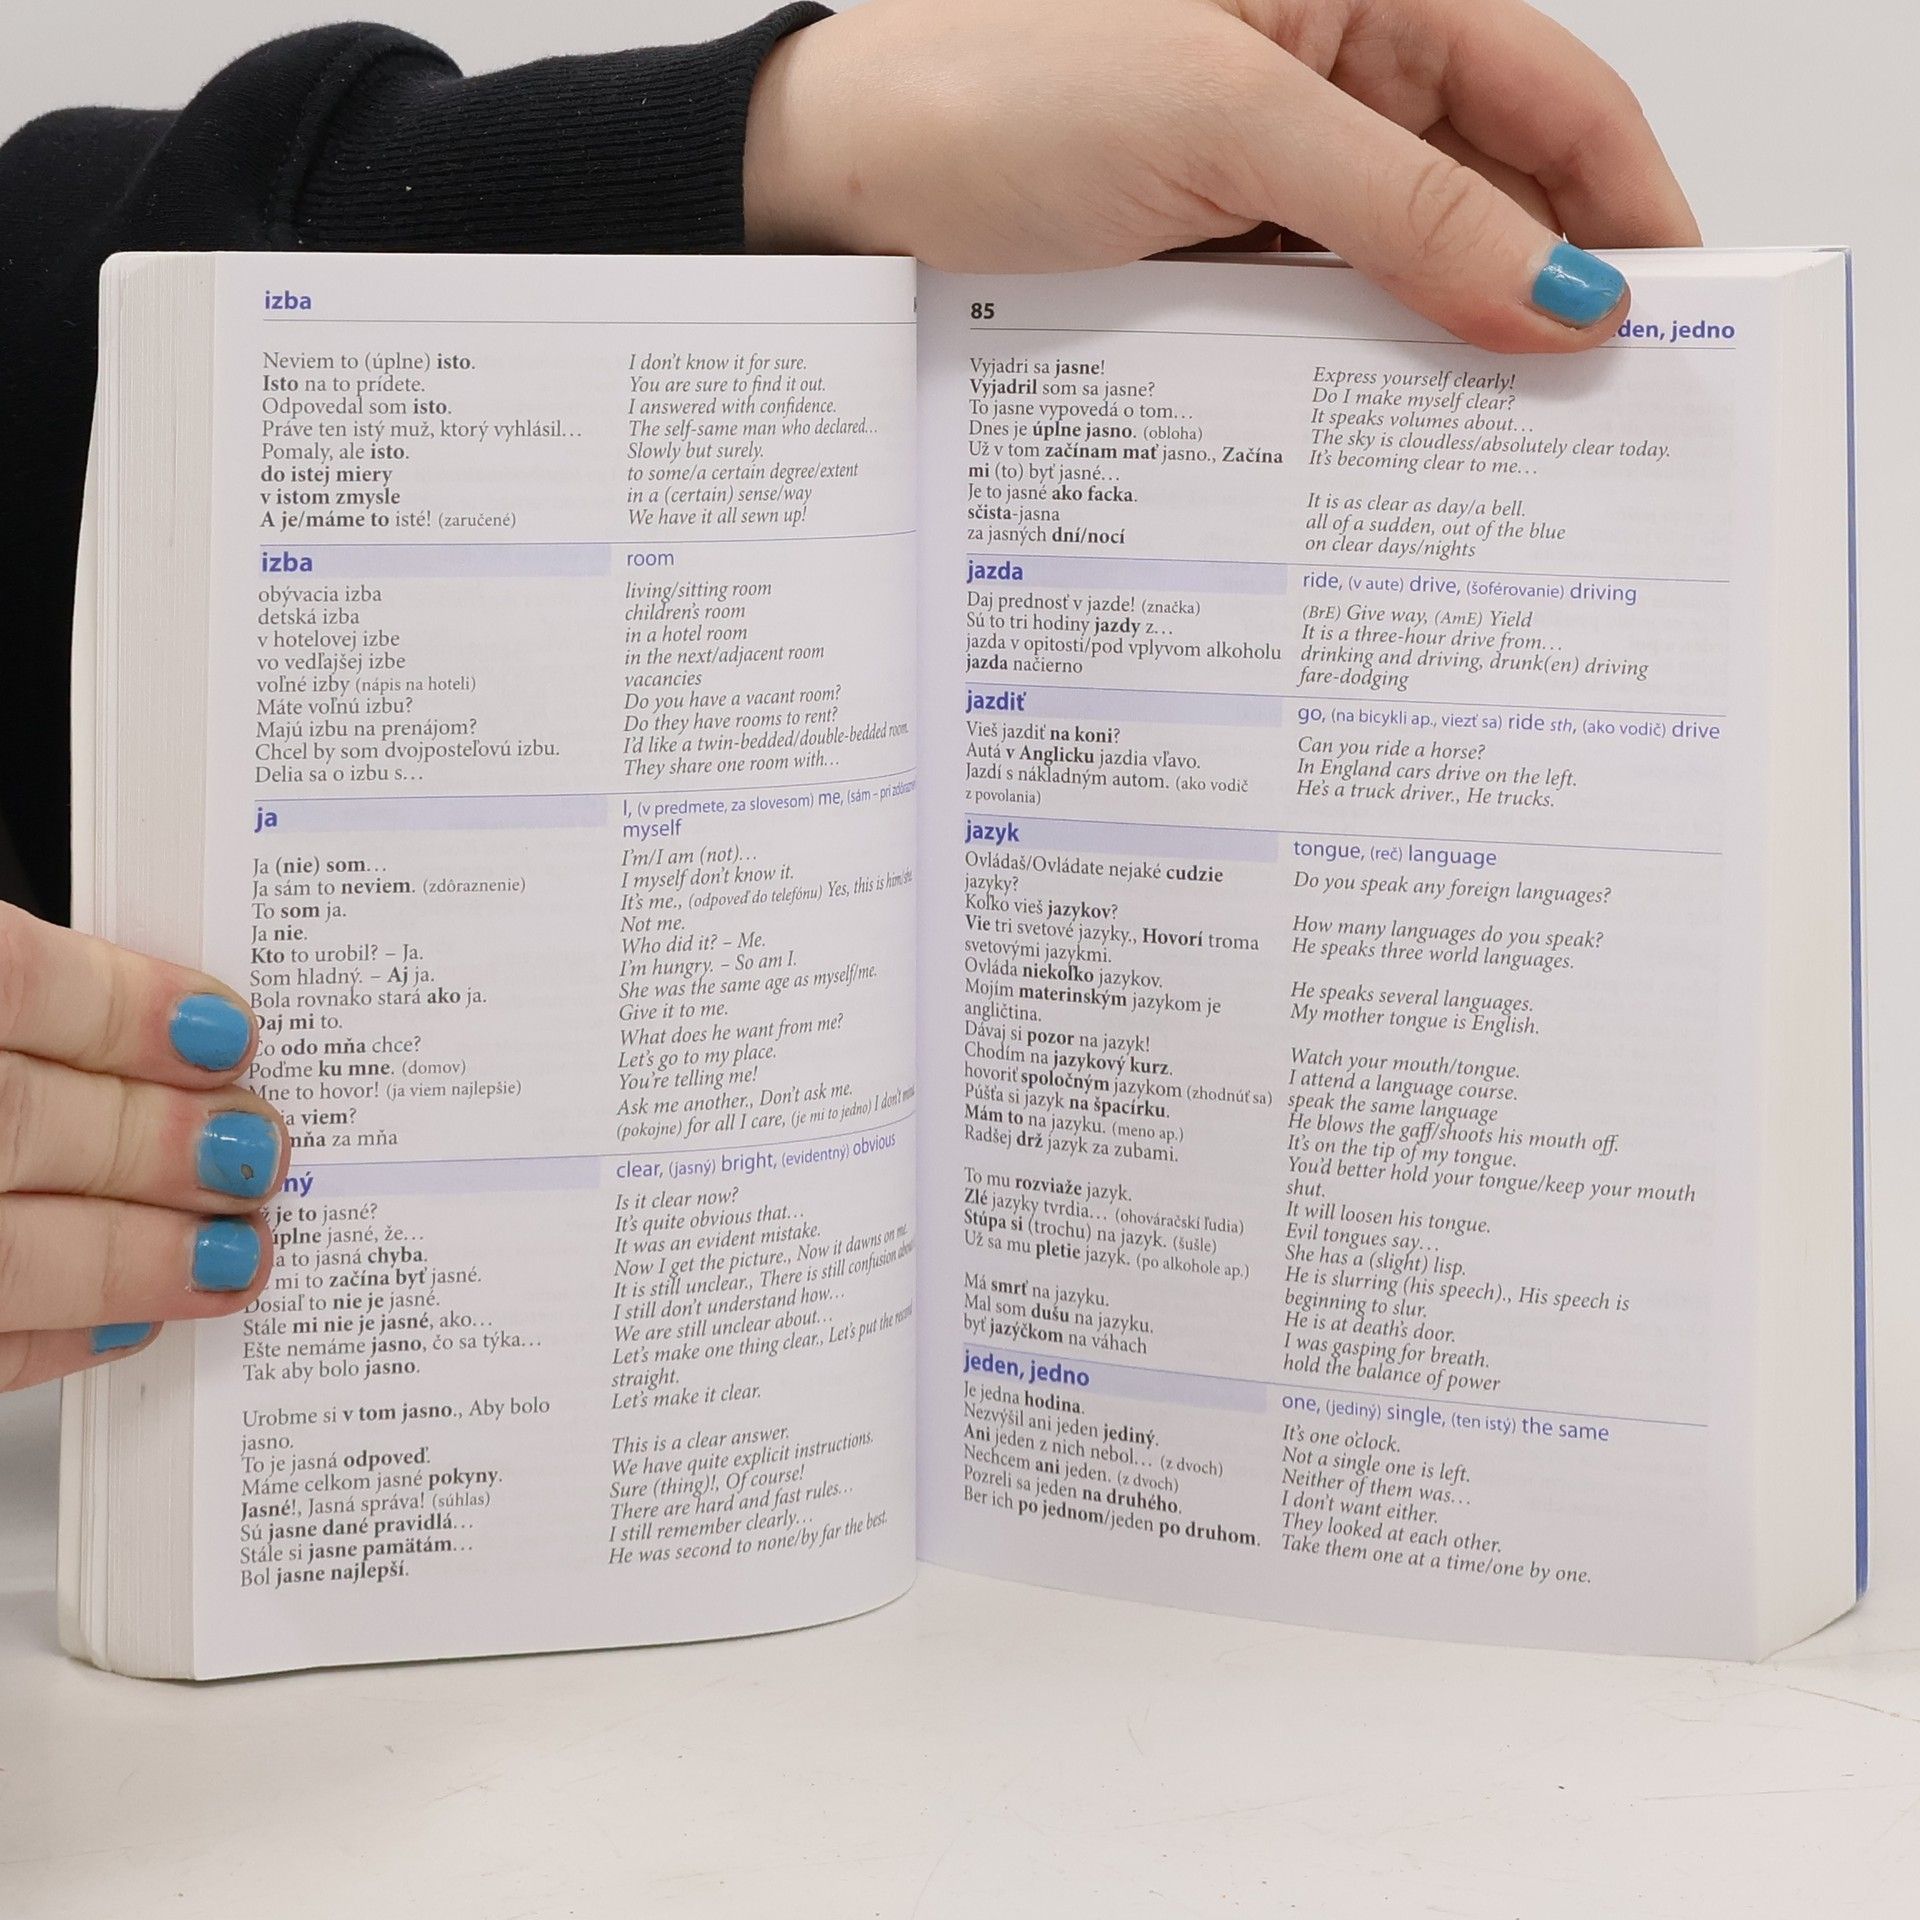 izba
Neviem to (úplne) isto.
Isto na to prídete.
Odpovedal som isto.
Práve ten istý muž, ktorý vyhlásil…
Pomaly, ale isto.
do istej miery
v istom zmysle
A je/máme to isté! (zaručené)
I don't know it for sure.
You are sure to find it out.
I answered with confidence.
The self-same man who declared…
Slowly but surely.
to some/a certain degree/extent
in a (certain) sense/way
We have it all sewn up!
izba
room
obývacia izba
detská izba
v hotelovej izbe
vo vedľajšej izbe
voľné izby (nápis na hoteli)
Máte voľnú izbu?
Majú izbu na prenájom?
Chcel by som dvojposteľovú izbu.
Delia sa o izbu s…
living/sitting room
children's room
in a hotel room
in the next/adjacent room
vacancies
Do you have a vacant room?
Do they have rooms to rent?
I'd like a twin-bedded/double-bedded room.
They share one room with…
ja
I, (v predmete, za slovesom) me, (sám – pri
myself
Ja (nie) som…
Ja sám to neviem. (zdôraznenie)
To som ja.
Ja nie.
Kto to urobil? – Ja.
Som hladný. – Aj ja.
Bola rovnako stará ako ja.
Daj mi to.
Čo odo mňa chce?
Poďme ku mne. (domov)
Mne to hovor! (ja viem najlepšie)
ja viem?
mňa za mňa
I'm/I am (not)…
I myself don't know it.
It's me., (odpoveď do telefónu) Yes, this is him/she.
Not me.
Who did it? – Me.
I'm hungry. – So am I.
She was the same age as myself/me.
Give it to me.
What does he want from me?
Let's go to my place.
You're telling me!
Ask me another., Don't ask me.
(pokojne) for all I care, (je mi to jedno) I don't
ný
clear, (jasný) bright, (evidentný) obvious
je to jasné?
úplne jasné, že…
a to jasná chyba.
mi to začína byť jasné.
Dosiaľ to nie je jasné.
Stále mi nie je jasné, ako…
Ešte nemáme jasno, čo sa týka…
Tak aby bolo jasno.
Urobme si v tom jasno., Aby bolo
jasno.
To je jasná odpoveď.
Máme celkom jasné pokyny.
Jasné!, Jasná správa! (súhlas)
Sú jasne dané pravidlá…
Stále si jasne pamätám…
Bol jasne najlepší.
Is it clear now?
It's quite obvious that…
It was an evident mistake.
Now I get the picture., Now it dawns on me.
It is still unclear., There is still confusion
I still don't understand how…
We are still unclear about…
Let's make one thing clear., Let's put the record
straight.
Let's make it clear.
This is a clear answer.
We have quite explicit instructions.
Sure (thing)!, Of course!
There are hard and fast rules…
I still remember clearly…
He was second to none/by far the best.
85
den, jedno
Vyjadri sa jasne!
Vyjadril som sa jasne?
To jasne vypovedá o tom…
Dnes je úplne jasno. (obloha)
Už v tom začínam mať jasno., Začína
mi (to) byť jasné…
Je to jasné ako facka.
sčista-jasna
za jasných dní/nocí
Express yourself clearly!
Do I make myself clear?
It speaks volumes about…
The sky is cloudless/absolutely clear today.
It's becoming clear to me…
It is as clear as day/a bell.
all of a sudden, out of the blue
on clear days/nights
jazda
ride, (v aute) drive, (šoférovanie) driving
Daj prednosť v jazde! (značka)
Sú to tri hodiny jazdy z…
jazda v opitosti/pod vplyvom alkoholu
jazda načierno
(BrE) Give way, (AmE) Yield
It is a three-hour drive from…
drinking and driving, drunk(en) driving
fare-dodging
jazdiť
go, (na bicykli ap., viezť sa) ride sth, (ako vodič) drive
Vieš jazdiť na koni?
Autá v Anglicku jazdia vľavo.
Jazdí s nákladným autom. (ako vodič
z povolania)
Can you ride a horse?
In England cars drive on the left.
He's a truck driver., He trucks.
jazyk
tongue, (reč) language
Ovládaš/Ovládate nejaké cudzie
jazyky?
Koľko vieš jazykov?
Vie tri svetové jazyky., Hovorí troma
svetovými jazykmi.
Ovláda niekoľko jazykov.
Mojím materinským jazykom je
angličtina.
Dávaj si pozor na jazyk!
Chodím na jazykový kurz.
hovoriť spoločným jazykom (zhodnúť sa)
Púšťa si jazyk na špacírku.
Mám to na jazyku. (meno ap.)
Radšej drž jazyk za zubami.
To mu rozviaže jazyk.
Zlé jazyky tvrdia… (ohováračskí ľudia)
Stúpa si (trochu) na jazyk. (šušle)
Už sa mu pletie jazyk. (po alkohole ap.)
Má smrť na jazyku.
Mal som dušu na jazyku.
byť jazýčkom na váhach
Do you speak any foreign languages?
How many languages do you speak?
He speaks three world languages.
He speaks several languages.
My mother tongue is English.
Watch your mouth/tongue.
I attend a language course.
speak the same language
He blows the gaff/shoots his mouth off.
It's on the tip of my tongue.
You'd better hold your tongue/keep your mouth
shut.
It will loosen his tongue.
Evil tongues say…
She has a (slight) lisp.
He is slurring (his speech)., His speech is
beginning to slur.
He is at death's door.
I was gasping for breath.
hold the balance of power
jeden, jedno
one, (jediný) single, (ten istý) the same
Je jedna hodina.
Nezvýšil ani jeden jediný.
Ani jeden z nich nebol… (z dvoch)
Nechcem ani jeden. (z dvoch)
Pozreli sa jeden na druhého.
Ber ich po jednom/jeden po druhom.
It's one o'clock.
Not a single one is left.
Neither of them was…
I don't want either.
They looked at each other.
Take them one at a time/one by one.